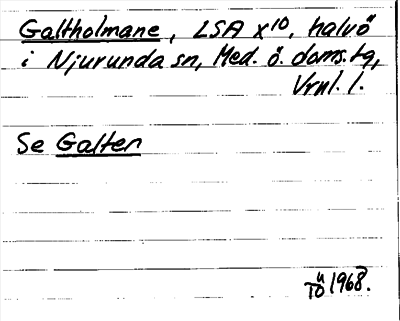 Galtholmane, LSA x10, halvö
i Njurunda sn, Med. ö. doms.tg,
Vrnl. l.
Se Galten
4/10 1968.